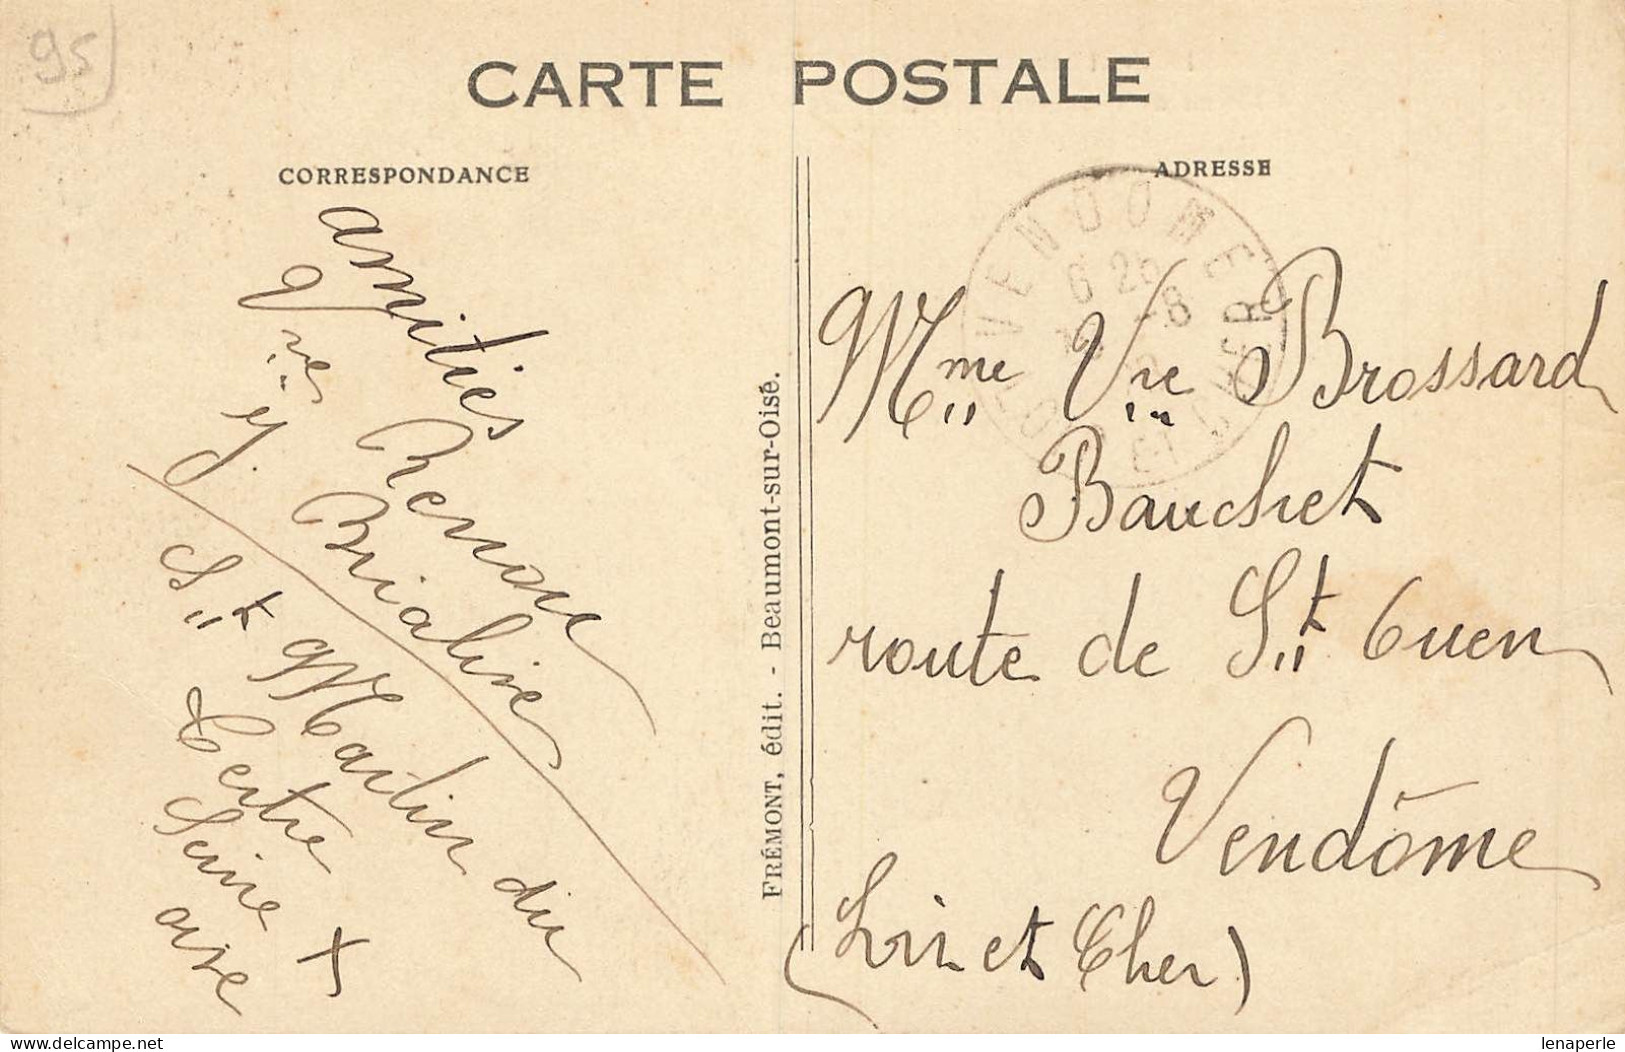 95
CARTE POSTALE
CORRESPONDANCE
ADRESSE
amitiés
Vve Renou
J. Brialix
St Martin du
Tertre
Seine &
oise
FRÉMONT, édit. - Beaumont-sur-Oise.
VENDOME
6 20
-8
LOIR ET CHER
Mme Vve Brossard
Bauchet
route de St Ouen
Vendôme
(Loir et Cher)
lenaperle